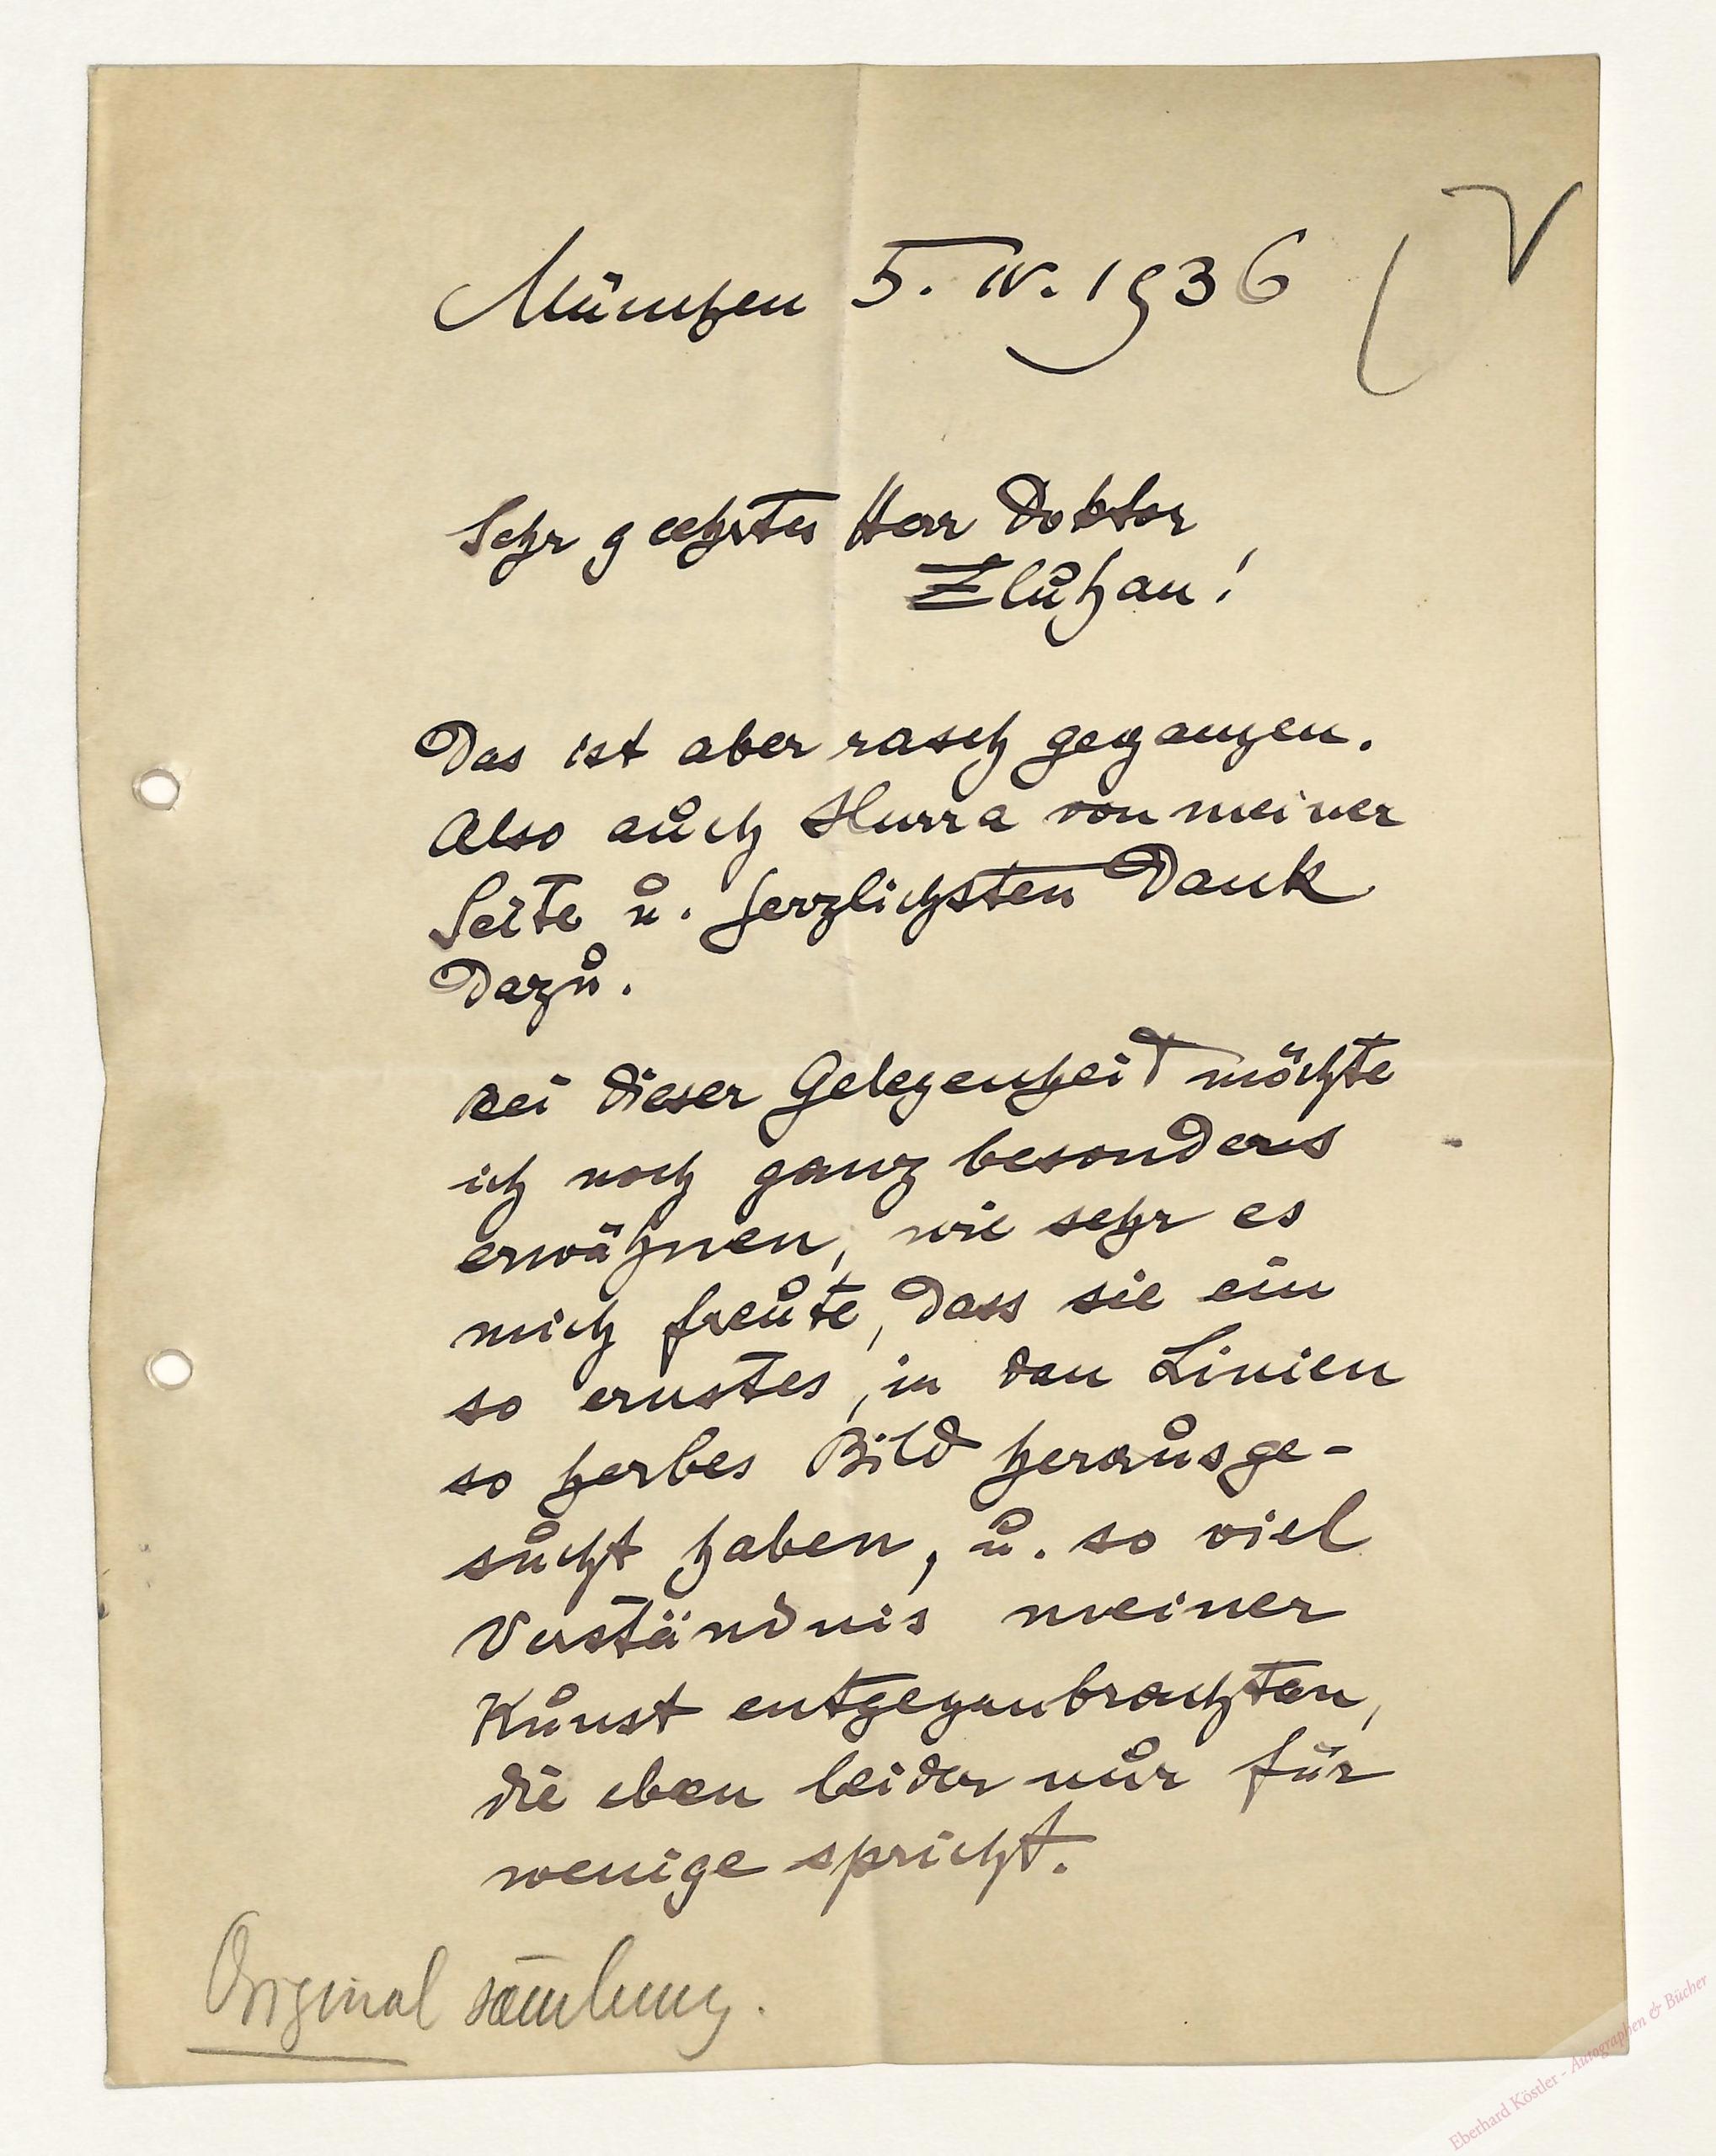 München 5. IV. 1936
Sehr geehrter Herr Doktor
Zluhan!
Das ist aber rasch gegangen.
Also auch Hurra von meiner
Seite u. herzlichsten Dank
Dazu.
Bei dieser Gelegenheit möchte
ich noch ganz besonders
erwähnen, wie sehr es
mich freute, dass sie ein
so ernstes, in den Linien
so herbes Bild herausge-
sucht haben, u. so viel
Verständnis meiner
Kunst entgegenbrachten,
die eben leider nur für
wenige spricht.
Original sam̄lung.
Eberhard Köstler - Autographen & Bücher